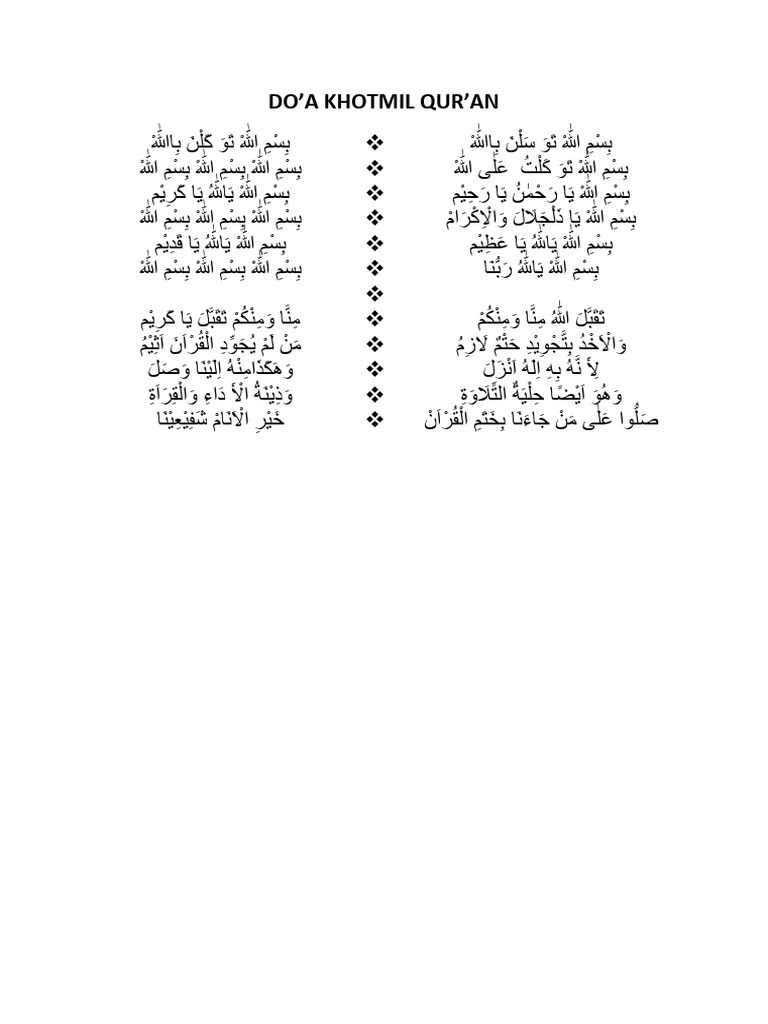 DO’A KHOTMIL QUR’AN
بِسْمِ اللّٰهْ تَوَ سَلْنَ بِااللّٰهْ ❖ بِسْمِ اللّٰهْ تَوَ كَلْنَ بِااللّٰهْ
بِسْمِ اللّٰهْ تَوَ كَلْتُ عَلٰى اللّٰهْ ❖ بِسْمِ اللّٰهْ بِسْمِ اللّٰهْ بِسْمِ اللّٰهْ
بِسْمِ اللّٰهْ يَا رَحْمٰنُ يَا رَحِيْم ❖ بِسْمِ اللّٰهْ يَاللّٰهُ يَا كَرِيْم
بِسْمِ اللّٰهْ يَا ذَلْجَلَالَ وَالْاِكْرَامْ ❖ بِسْمِ اللّٰهْ بِسْمِ اللّٰهْ بِسْمِ اللّٰهْ
بِسْمِ اللّٰهْ يَاللّٰهُ يَا عَظِيْم ❖ بِسْمِ اللّٰهْ يَاللّٰهُ يَا قَدِيْم
بِسْمِ اللّٰهْ يَاللّٰهُ رَبُّنَا ❖ بِسْمِ اللّٰهْ بِسْمِ اللّٰهْ بِسْمِ اللّٰهْ
❖
تَقَبَّلَ اللّٰهُ مِنَّا وَمِنْكُمْ ❖ مِنَّا وَمِنْكُمْ تَقَبَّلَ يَا كَرِيْم
وَالْاَخْدُ بِتَّجْوِيْدِ حَتْمٌ لَازِمُ ❖ مَنْ لَمْ يُجَوِّدِ الْقُرْاَنَ اَثِيْمُ
لِأَ نَّهُ بِهِ اِلَهُ اَنْزَلَ ❖ وَهَكَذَامِنْهُ اِلَيْنَا وَصَلَ
وَهُوَ اَيْضًا حِلْيَةٌ التِّلَاوَةِ ❖ وَذِيْنَةُ الْأَ دَاءِ وَالْقِرَاَةِ
صَلُّوا عَلٰى مَنْ جَاءَنَا بِخَتَمِ الْقُرْاَنْ ❖ خَيْرِ الْاَنَامْ شَفِيْعِيْنَا